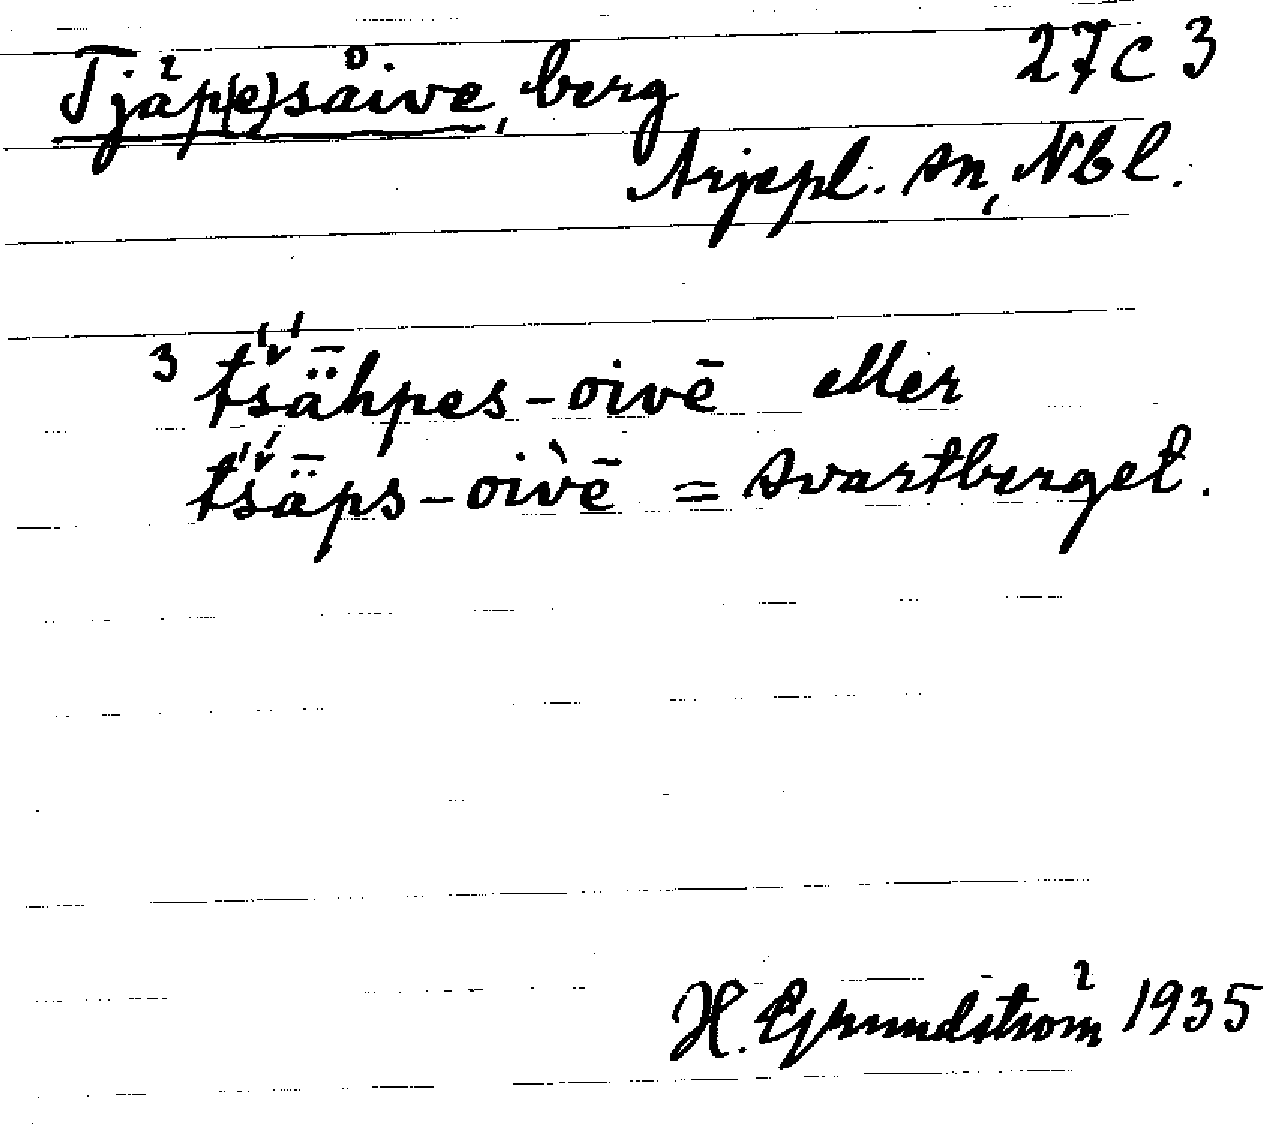 Tjäp(e)såive, berg 27 C 3
Arjepl. sn, Nbl.
3 tš́ǟhpes-oivē eller
tš́ǟps-oiv̀ē = svartberget.
H. Grundström 1935